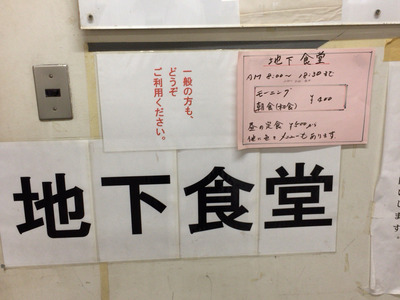 一般の方も、
どうぞ
ご利用ください。
地下食堂
AM 8:00〜18:30まで
モーニング
朝食(和食) ¥400
昼の定食 ¥500から
他に色々メニューもあります
地下食堂